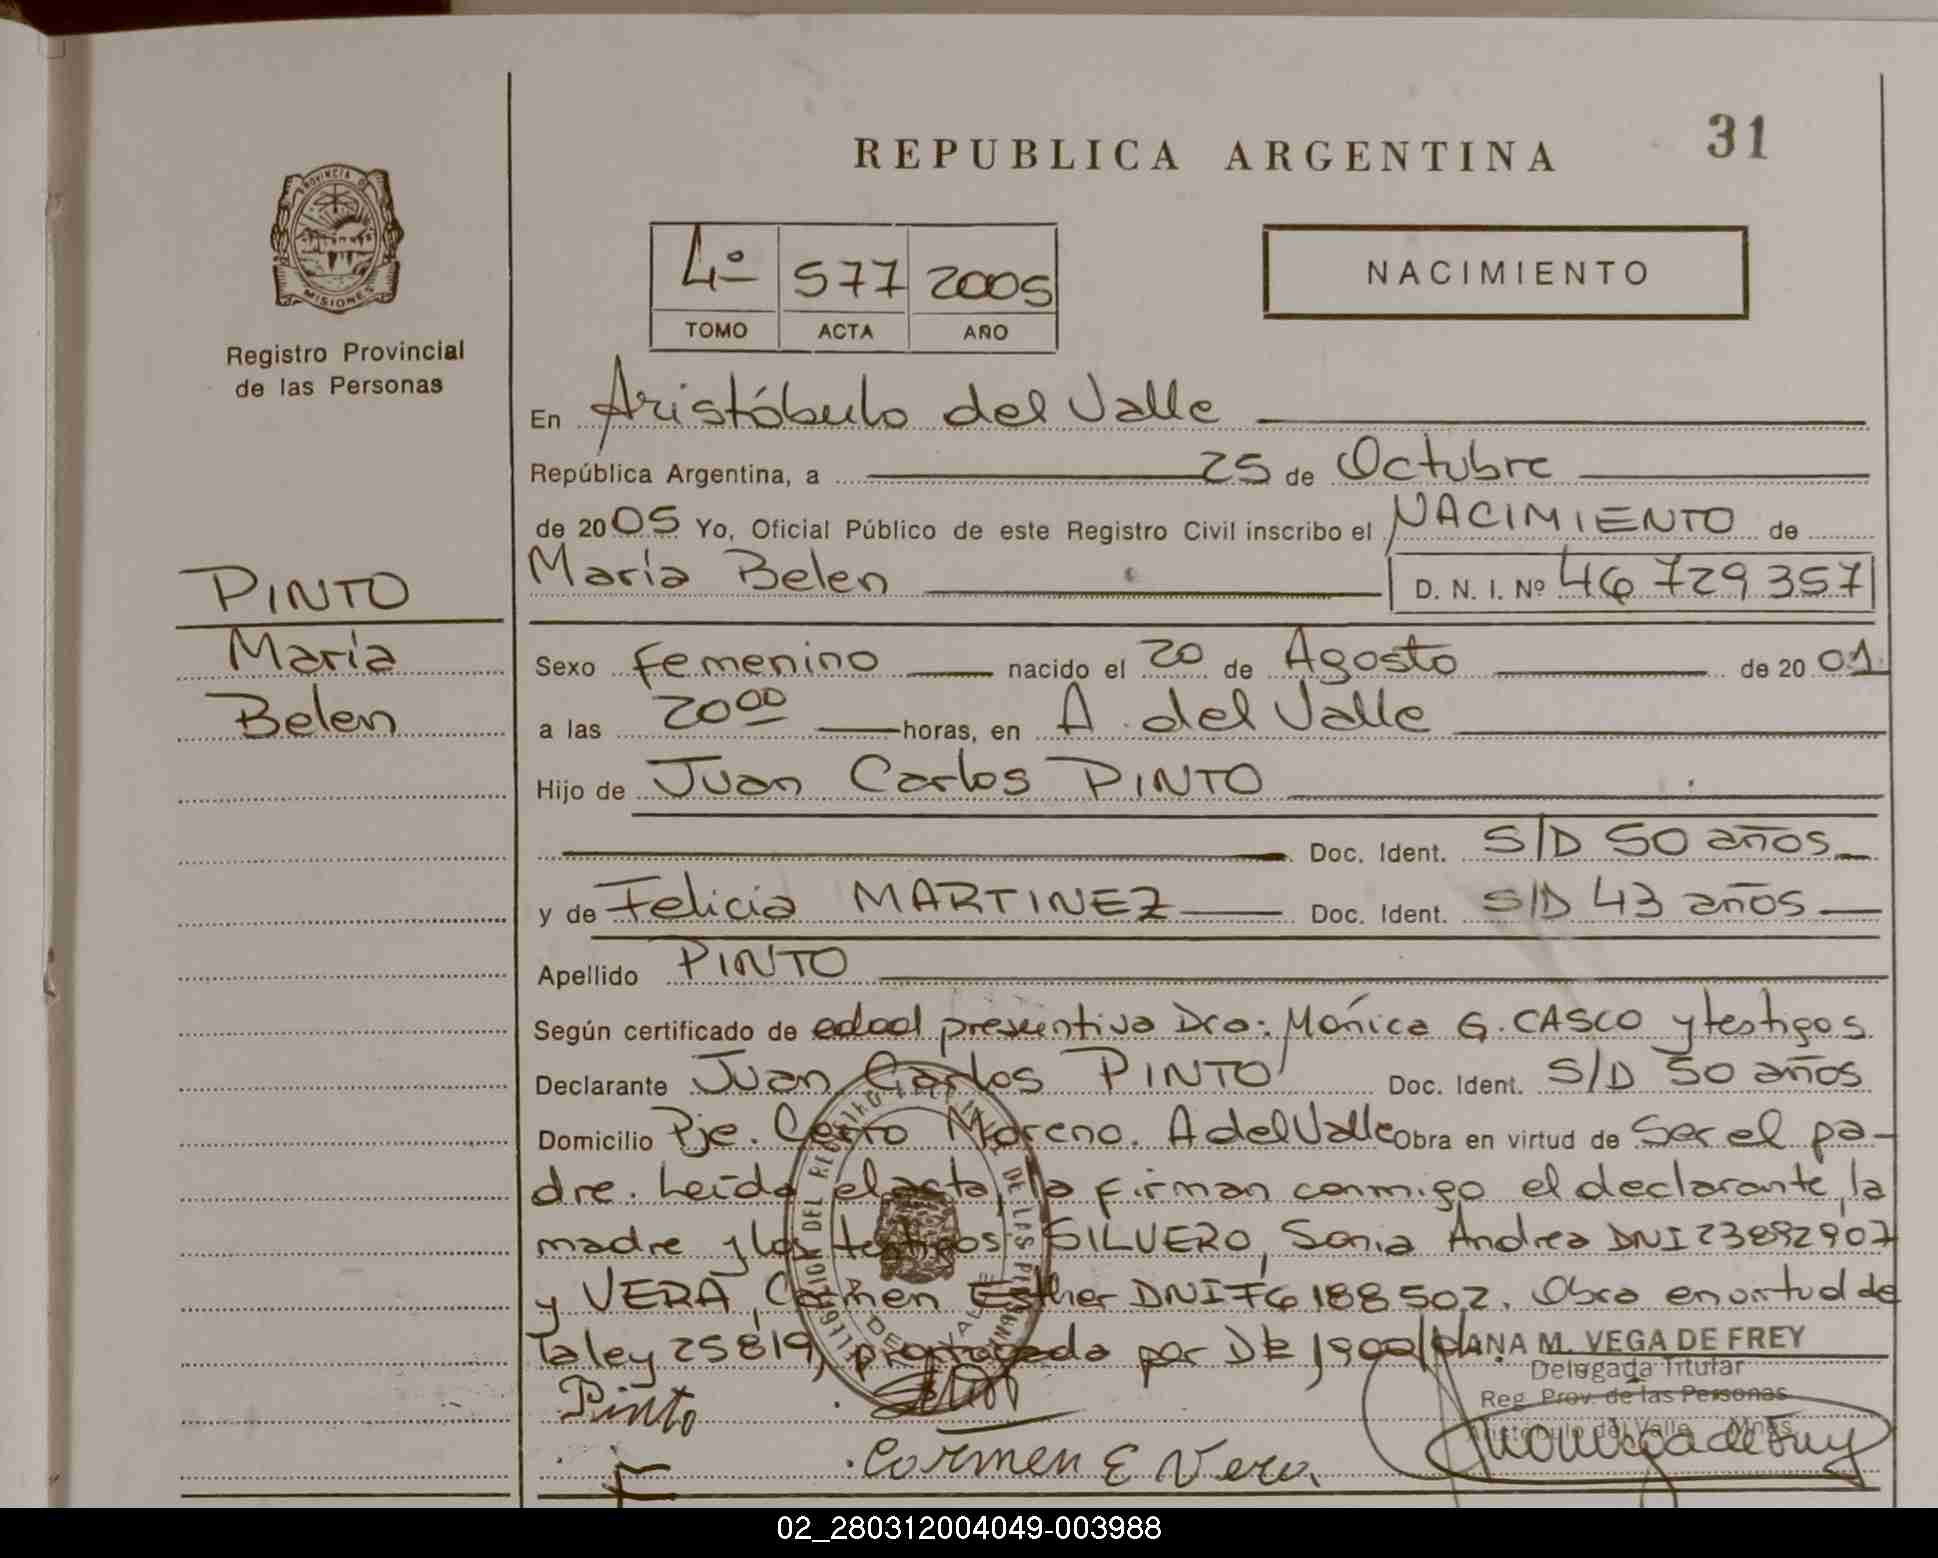 31
REPUBLICA ARGENTINA
PROVINCIA DE
MISIONES
Registro Provincial
de las Personas
4º 577 2005
TOMO ACTA AÑO
NACIMIENTO
En Aristóbulo del Valle
República Argentina, a 25 de Octubre
de 2005 Yo, Oficial Público de este Registro Civil inscribo el NACIMIENTO de
María Belen D. N. I. Nº 46 729 357
PINTO
María
Belen
Sexo femenino nacido el 20 de Agosto de 2001
a las 20 00 horas, en A. del Valle
Hijo de Juan Carlos PINTO
Doc. Ident. S/D 50 años
y de Felicia MARTINEZ Doc. Ident. S/D 43 años
Apellido PINTO
Según certificado de edad presuntiva Dra: Mónica G. CASCO y testigos
Declarante Juan Carlos PINTO Doc. Ident. S/D 50 años
Domicilio Pje. Cerro Moreno. A del Valle Obra en virtud de Ser el pa-
dre. Leída el acta, la firman conmigo el declarante, la
madre y los testigos SILVERO, Sonia Andrea DNI 23892907
y VERA, Carmen Esther DNI F6 188 502. Obra en virtud de
la ley 25819, prorrogada por
ANA M. VEGA DE FREY
Delegada Titular
Reg. Prov. de las Personas
Aristóbulo del Valle Mnes
Pinto
Carmen E Vera
02_280312004049-003988